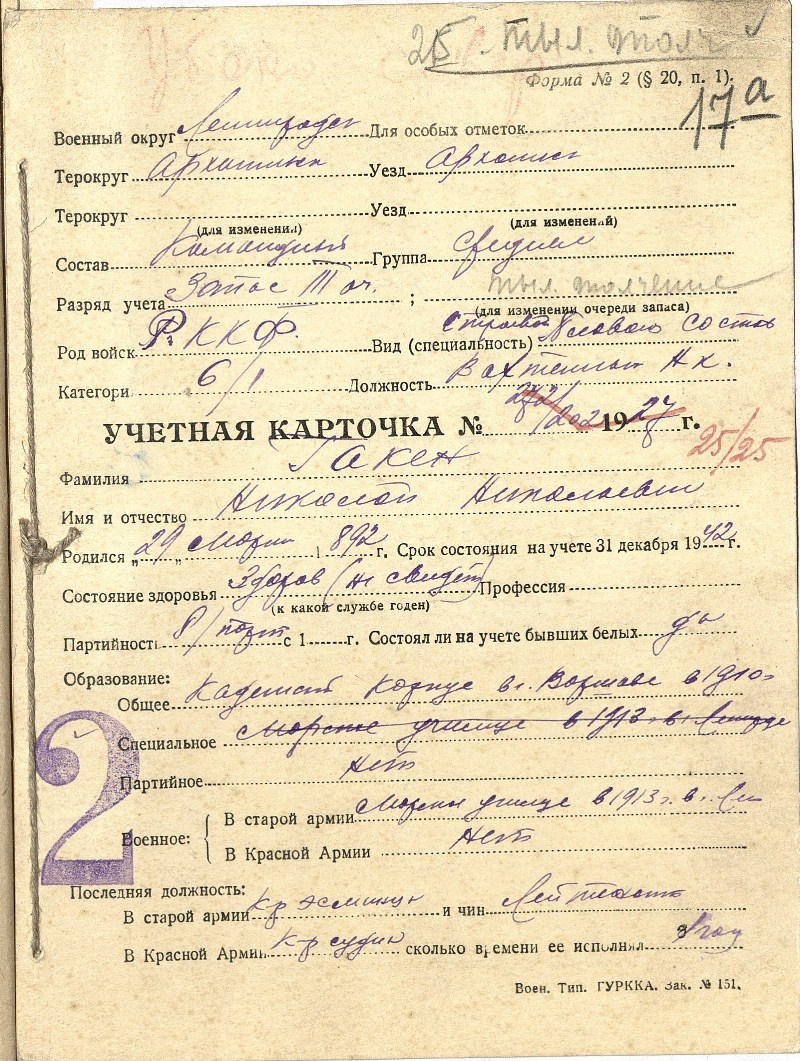 25 тыл. толч
Форма № 2 (§ 20, п. 1).
17а
Военный округ Ленинградск Для особых отметок
Терокруг Уезд
Терокруг Уезд
(для изменений) (для изменений)
Состав Командный Группа Средний
Разряд учета Запас III оч. ; тыл. толчение
(для изменения очереди запаса)
Род войск Р.ККФ. Вид (специальность) Строевой плового состав
Категори 6/1 Должность Вахтенный Нк.
УЧЕТНАЯ КАРТОЧКА № 202 1927 г.
25/25
Фамилия Гакен
Имя и отчество Николай Николаевич
Родился „29„ Марта 1892 г. Срок состояния на учете 31 декабря 1942 г.
Состояние здоровья Здоров (не свидет) Профессия
(к какой службе годен)
Партийность б/парт с 1 г. Состоял ли на учете бывших белых да
Образование:
Общее Кадетский корпус в г. Варшаве в 1910г
Специальное Морское училище в 1913 г. в
Партийное Нет
2
Военное: В старой армии Морское училище в 1913 г. в г.
В Красной Армии Нет
Последняя должность:
В старой армии и чин Лейтенант
В Красной Армии сколько времени ее исполнял 1 год
Воен. Тип. ГУРККА. Зак. № 151.